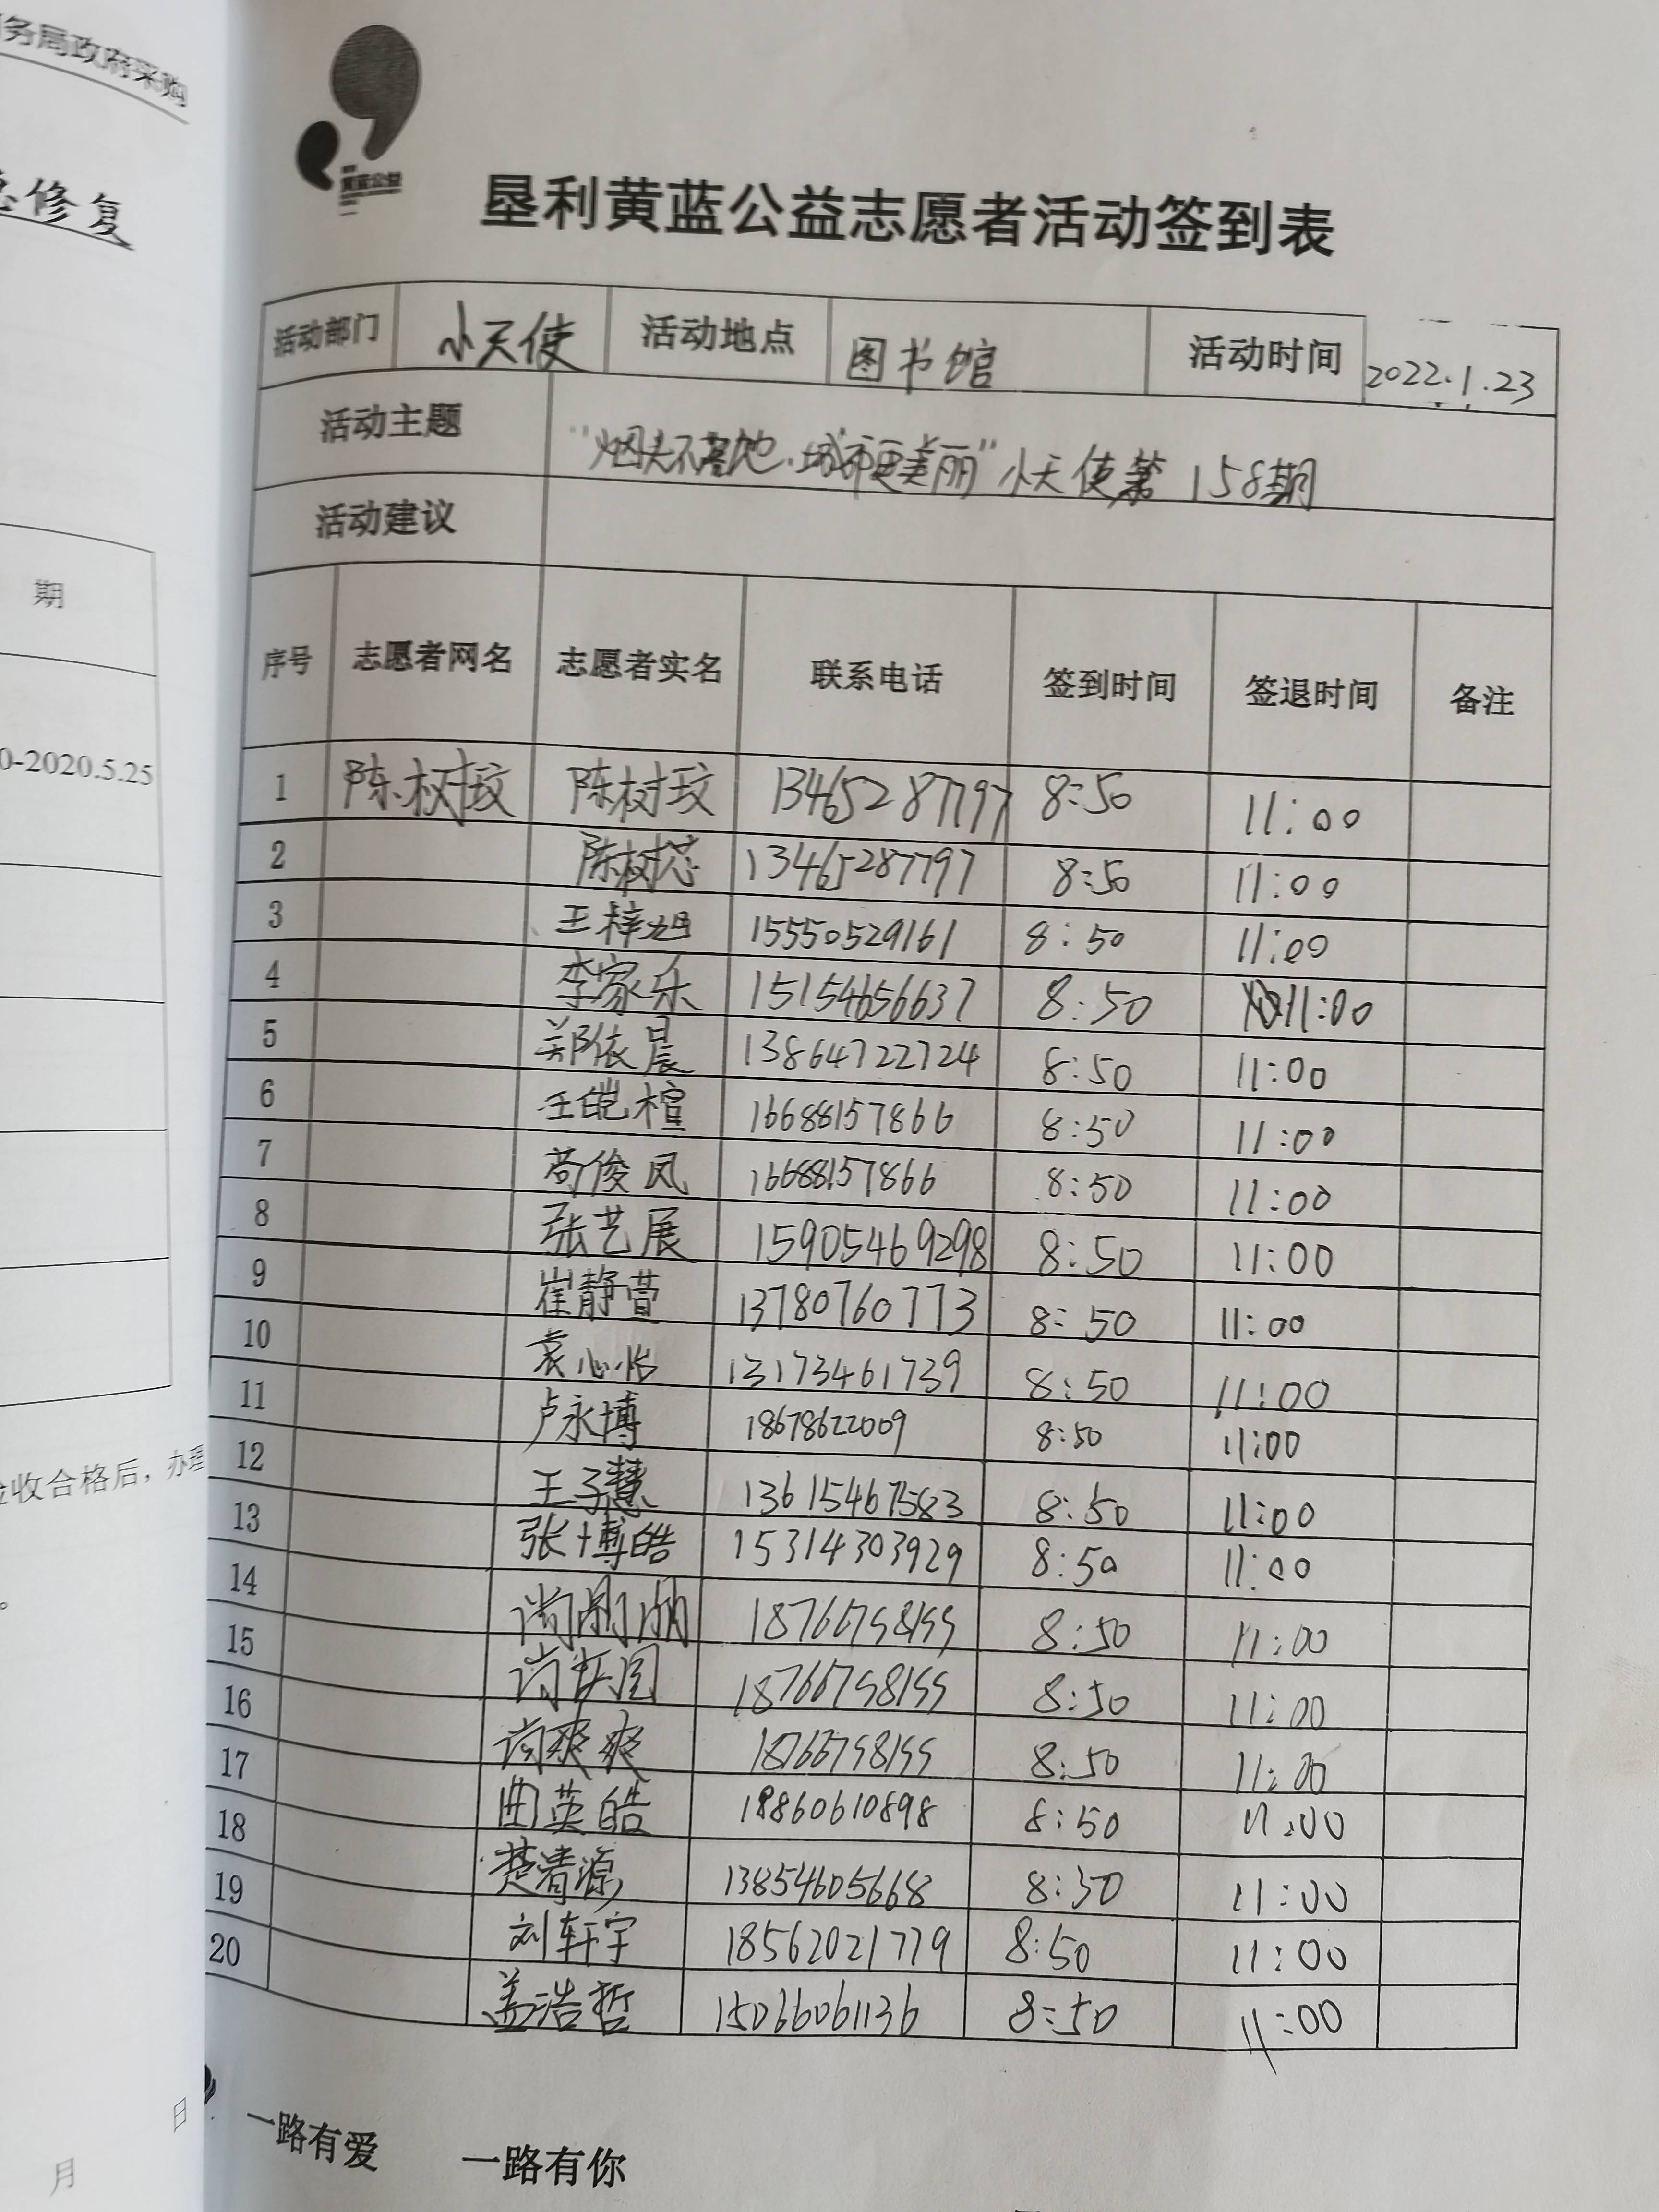 务局政府采购
修复
期
0-2020.5.25
验收合格后，办理
。
日
月
黄蓝公益
垦利黄蓝公益志愿者活动签到表
活动部门 小天使 活动地点 图书馆 活动时间 2022.1.23
活动主题 “烟头不落地.城市更美丽”小天使第158期
活动建议
序号 志愿者网名 志愿者实名 联系电话 签到时间 签退时间 备注
1 陈树玟 陈树玟 13465287797 8:50 11:00
2 陈树芯 13465287797 8:50 11:00
3 王梓旭 15550529161 8:50 11:00
4 李家乐 15154656637 8:50 11:00
5 郑依晨 13864722724 8:50 11:00
6 王皑楦 16688157866 8:50 11:00
7 苟俊凤 16688157866 8:50 11:00
8 张艺展 15905469298 8:50 11:00
9 崔静萱 13780760773 8:50 11:00
10 袁心怡 13173461739 8:50 11:00
11 卢永博 18678622009 8:50 11:00
12 王子慧 13615467583 8:50 11:00
13 张博皓 15314303929 8:50 11:00
14 8:50 11:00
15 8:50 11:00
16 爽爽 8:50 11:00
17 曲英皓 18860610898 8:50 11:00
18 楚清源 138546056668 8:50 11:00
19 刘轩宇 18562021779 8:50 11:00
20 盖浩哲 15066061136 8:50 11:00
一路有爱 一路有你